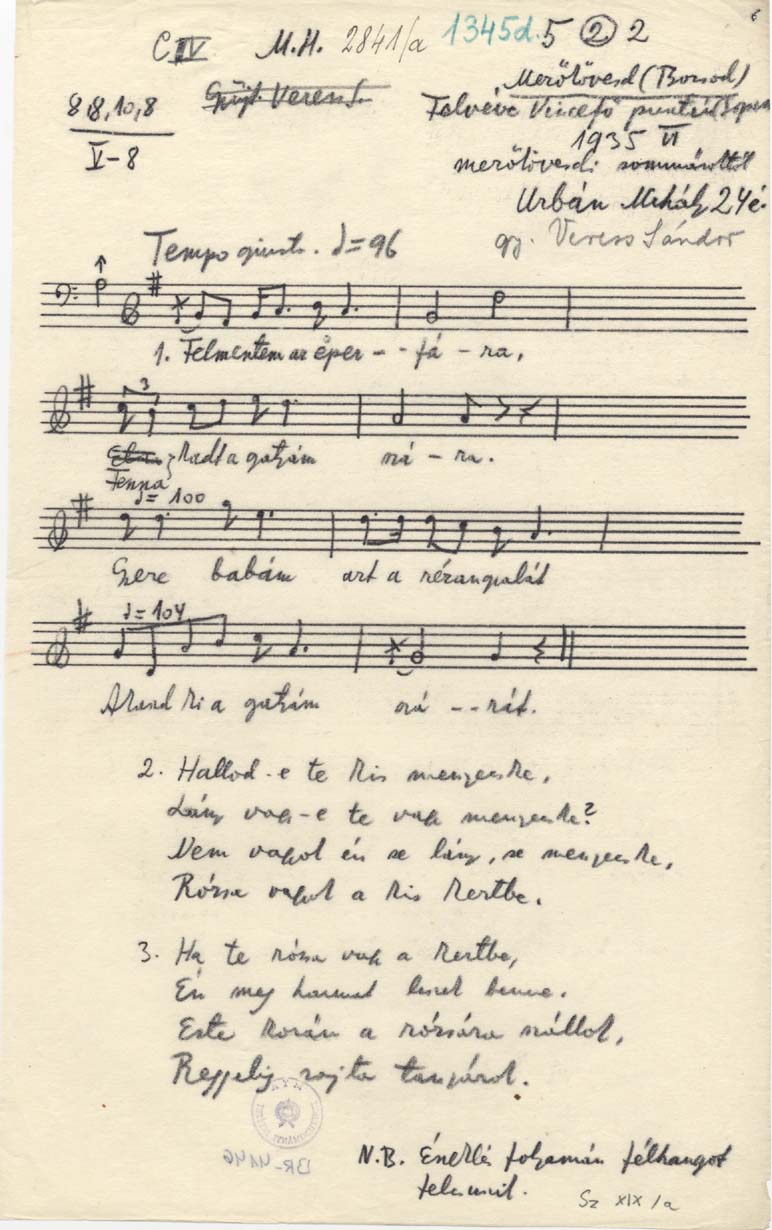 6
C IV M.H. 2841/a 1345d. 5 2 2
Gyűjt. Veress S.
8,8,10,8
V-8
Mezőkövesd (Borsod)
Felvéve
1935 VI
mezőkövesdi summásoktól
Urbán Mihály 24é.
gy. Veress Sándor
Tempo giusto. ♩=96
1. Felmentem az eper - - fá - ra,
3
Fenna
kadt a gatyám szá - ra.
♩= 100
Gyere babám azt a rézangyalát
♩=104
Akaszd ki a gatyám szá - - rát.
2. Hallod-e te kis menyecske,
Lány vagy-e te vagy menyecske?
Nem vagyok én se lány, se menyecske,
Rózsa vagyok a kis kertbe.
3. Ha te rózsa vagy a kertbe,
Én meg harmat leszek benne.
Este korán a rózsára szállok,
Reggelig rajta tanyázok.
BR-4146
N.B. Éneklés folyamán félhangot
Sz XIX/a